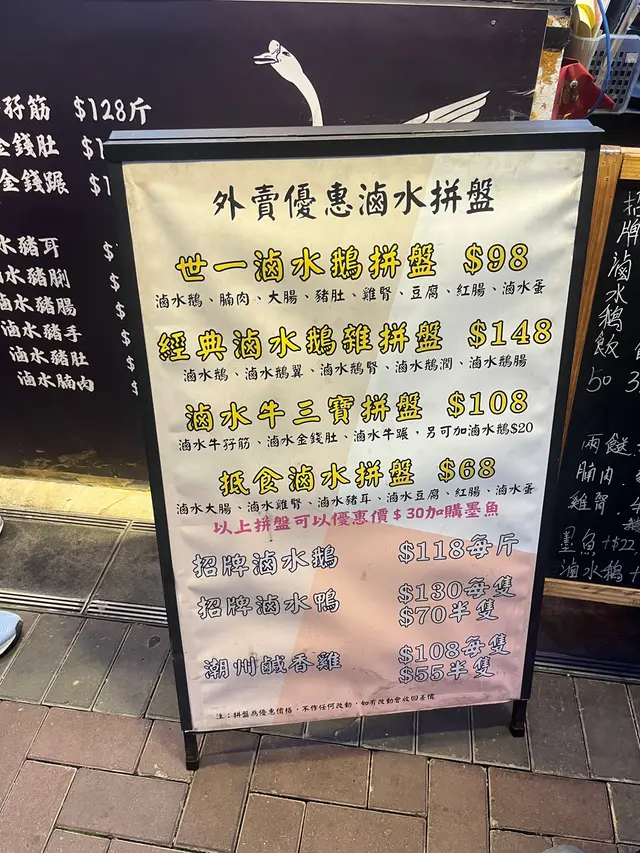 孖筋 $128斤
金錢肚 $1
金錢𨃩 $1
水豬耳 $
水豬脷 $
滷水豬腸 $
滷水豬手 $
滷水豬肚 $
滷水腩肉 $
外賣優惠滷水拼盤
世一滷水鵝拼盤 $98
滷水鵝、腩肉、大腸、豬肚、雞腎、豆腐、紅腸、滷水蛋
經典滷水鵝雜拼盤 $148
滷水鵝、滷水鵝翼、滷水鵝腎、滷水鵝潤、滷水鵝腸
滷水牛三寶拼盤 $108
滷水牛孖筋、滷水金錢肚、滷水牛𨃩、另可加滷水鵝$20
抵食滷水拼盤 $68
滷水大腸、滷水雞腎、滷水豬耳、滷水豆腐、紅腸、滷水蛋
以上拼盤可以優惠價$30加購墨魚
招牌滷水鵝 $118每斤
招牌滷水鴨 $130每隻
$70半隻
潮州鹹香雞 $108每隻
$55半隻
注：拼盤為優惠價格，不作任何改動，如有改動會收回差價
招牌滷水鵝飯
50
兩餸
腩肉．
雞腎．
墨魚+$22
滷水鵝+